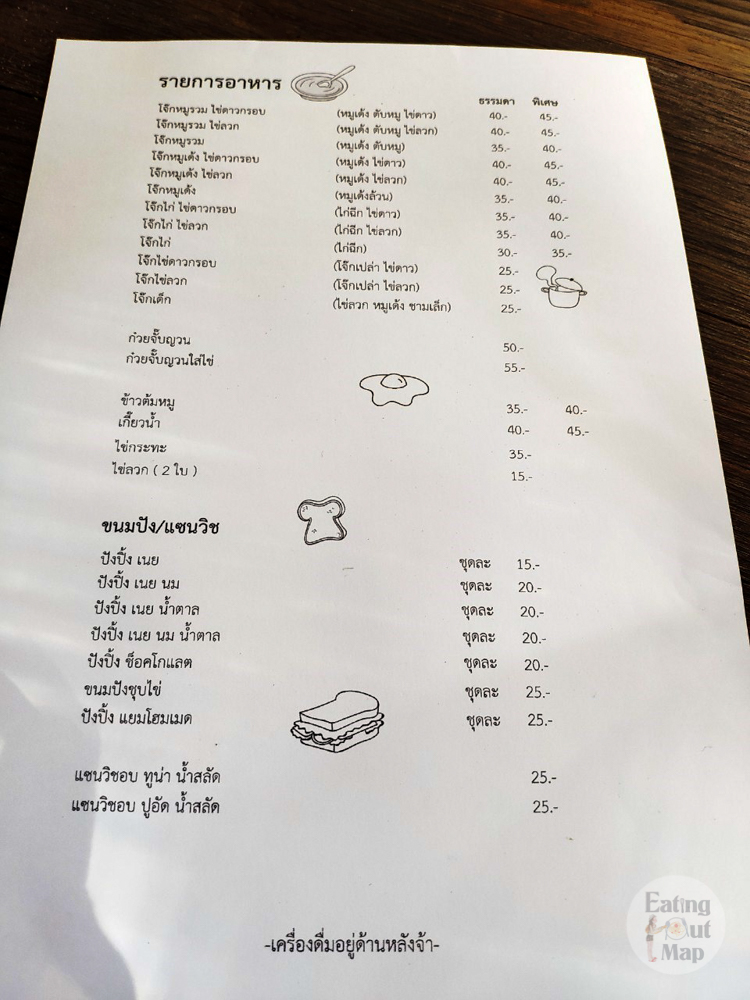 รายการอาหาร
ธรรมดา พิเศษ
โจ๊กหมูรวม ไข่ดาวกรอบ (หมูเด้ง ตับหมู ไข่ดาว) 40.- 45.-
โจ๊กหมูรวม ไข่ลวก (หมูเด้ง ตับหมู ไข่ลวก) 40.- 45.-
โจ๊กหมูรวม (หมูเด้ง ตับหมู) 35.- 40.-
โจ๊กหมูเด้ง ไข่ดาวกรอบ (หมูเด้ง ไข่ดาว) 40.- 45.-
โจ๊กหมูเด้ง ไข่ลวก (หมูเด้ง ไข่ลวก) 40.- 45.-
โจ๊กหมูเด้ง (หมูเด้งล้วน) 35.- 40.-
โจ๊กไก่ ไข่ดาวกรอบ (ไก่ฉีก ไข่ดาว) 35.- 40.-
โจ๊กไก่ ไข่ลวก (ไก่ฉีก ไข่ลวก) 35.- 40.-
โจ๊กไก่ (ไก่ฉีก) 30.- 35.-
โจ๊กไข่ดาวกรอบ (โจ๊กเปล่า ไข่ดาว) 25.-
โจ๊กไข่ลวก (โจ๊กเปล่า ไข่ลวก) 25.-
โจ๊กเด็ก (ไข่ลวก หมูเด้ง ชามเล็ก) 25.-
ก๋วยจั๊บญวน 50.-
ก๋วยจั๊บญวนใส่ไข่ 55.-
ข้าวต้มหมู 35.- 40.-
เกี๊ยวน้ำ 40.- 45.-
ไข่กระทะ 35.-
ไข่ลวก ( 2 ใบ ) 15.-
ขนมปัง/แซนวิช
ปังปิ้ง เนย ชุดละ 15.-
ปังปิ้ง เนย นม ชุดละ 20.-
ปังปิ้ง เนย น้ำตาล ชุดละ 20.-
ปังปิ้ง เนย นม น้ำตาล ชุดละ 20.-
ปังปิ้ง ช็อคโกแลต ชุดละ 20.-
ขนมปังชุบไข่ ชุดละ 25.-
ปังปิ้ง แยมโฮมเมด ชุดละ 25.-
แซนวิชอบ ทูน่า น้ำสลัด 25.-
แซนวิชอบ ปูอัด น้ำสลัด 25.-
-เครื่องดื่มอยู่ด้านหลังจ้า-
Eating
Out
Map